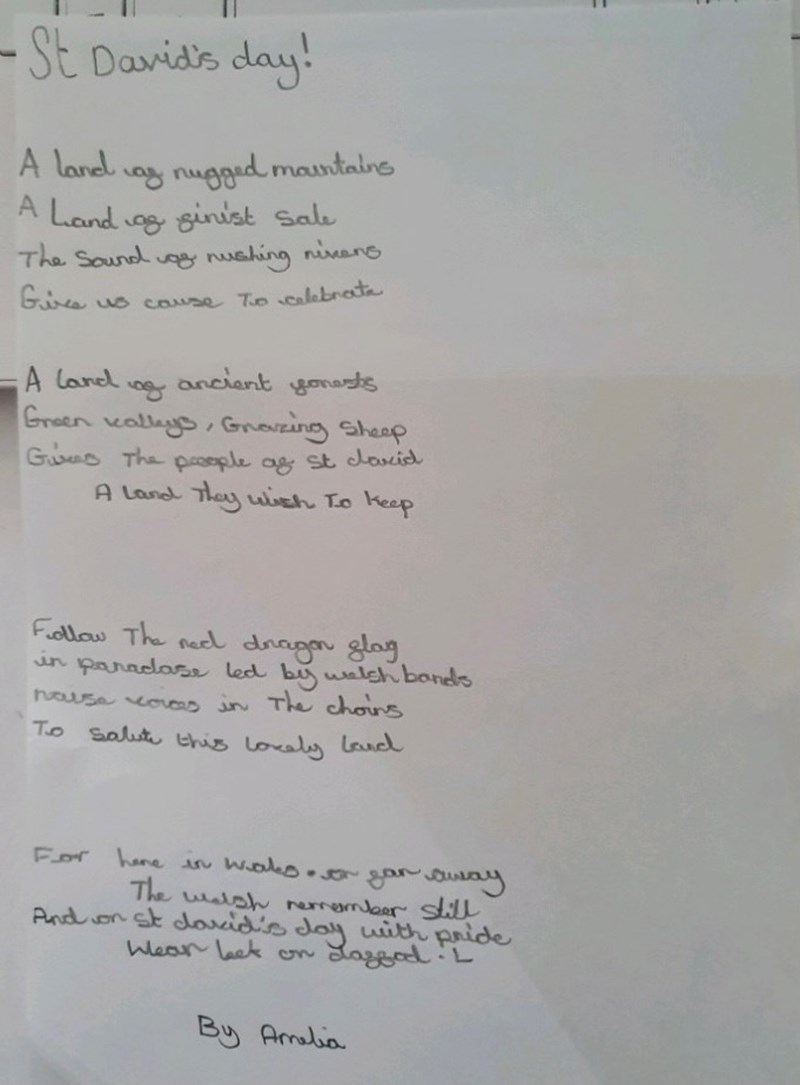 St David's day!
A land of rugged mountains
A Land of finist Sale
The Sound of rushing rivers
Give us cause To celebrate
A land of ancient forests
Green valleys, Grazing Sheep
Gives The people of St david
A land They wish To keep
Follow The red dragon flag
in paradase led by welsh bands
raise voices in The choirs
To salute this lovely land
For here in wales or far away
The welsh remember still
And on St david's day with pride
Wear leek or daffod.L
By Amelia